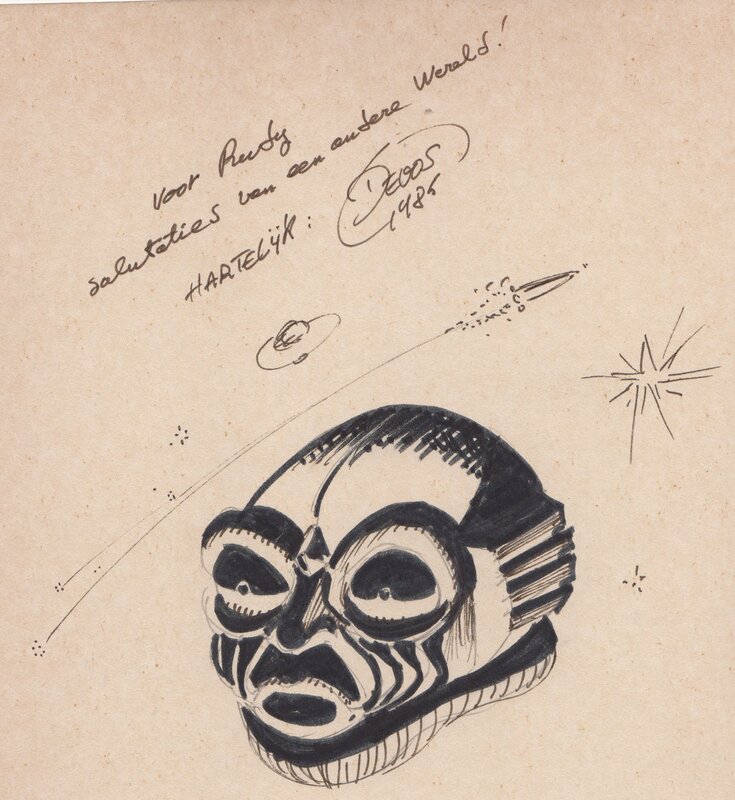 voor Rudy
salutaties van een andere Wereld!
HARTELIJK: DEVOS
1985